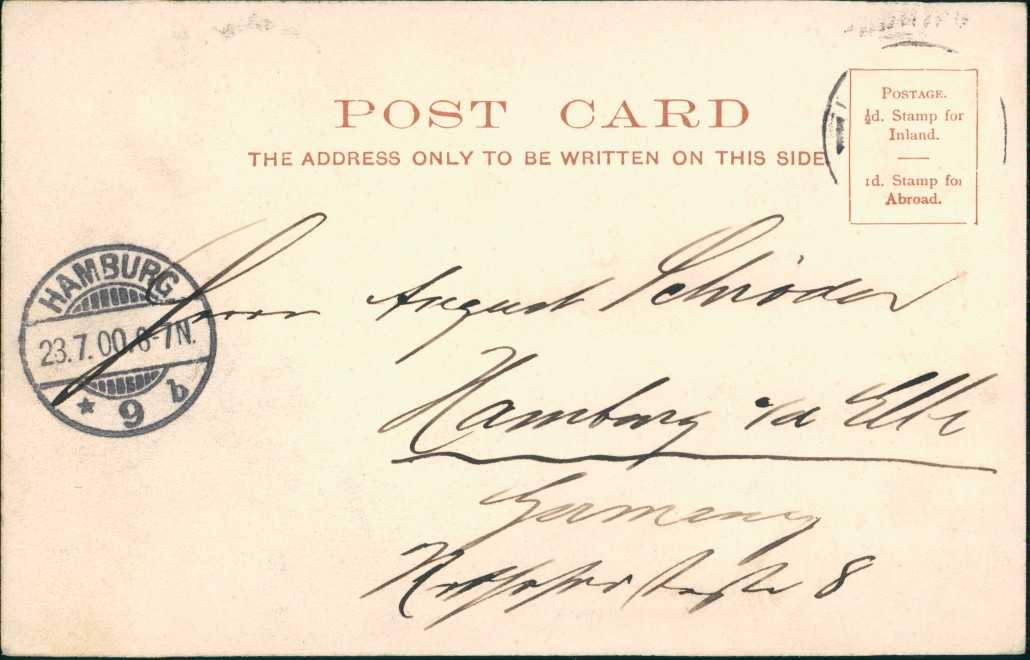 POST CARD
THE ADDRESS ONLY TO BE WRITTEN ON THIS SIDE
POSTAGE.
½d. Stamp for
Inland.
1d. Stamp for
Abroad.
HAMBURG.
23.7.00.6-7N.
* 9 b
Herrn August Schröder
Hamburg a/d Elbe
Germany
8